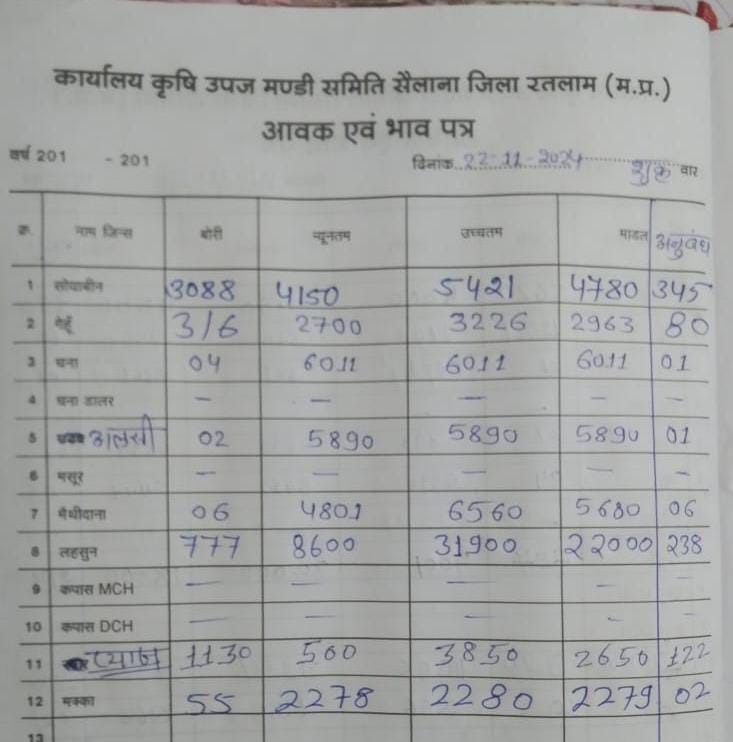 कार्यालय कृषि उपज मण्डी समिति सैलाना जिला रतलाम (म.प्र.)
आवक एवं भाव पत्र
वर्ष 201 - 201 दिनांक 22-11-2024 शुक्र वार
क्र. नाम जिन्स बोरी न्यूनतम उच्चतम माडल अनुबंध
1 सोयाबीन 3088 4150 5421 4780 345
2 गेहूँ 316 2700 3226 2963 80
3 चना 04 6011 6011 6011 01
4 चना डालर — — — — —
5 अलसी 02 5890 5890 5890 01
6 मसूर — — — — —
7 मैथीदाना 06 4801 6560 5680 06
8 लहसुन 777 8600 31900 22000 238
9 कपास MCH — — — — —
10 कपास DCH — — — — —
11 प्याज 1130 500 3850 2650 122
12 मक्का 55 2278 2280 2279 02
13